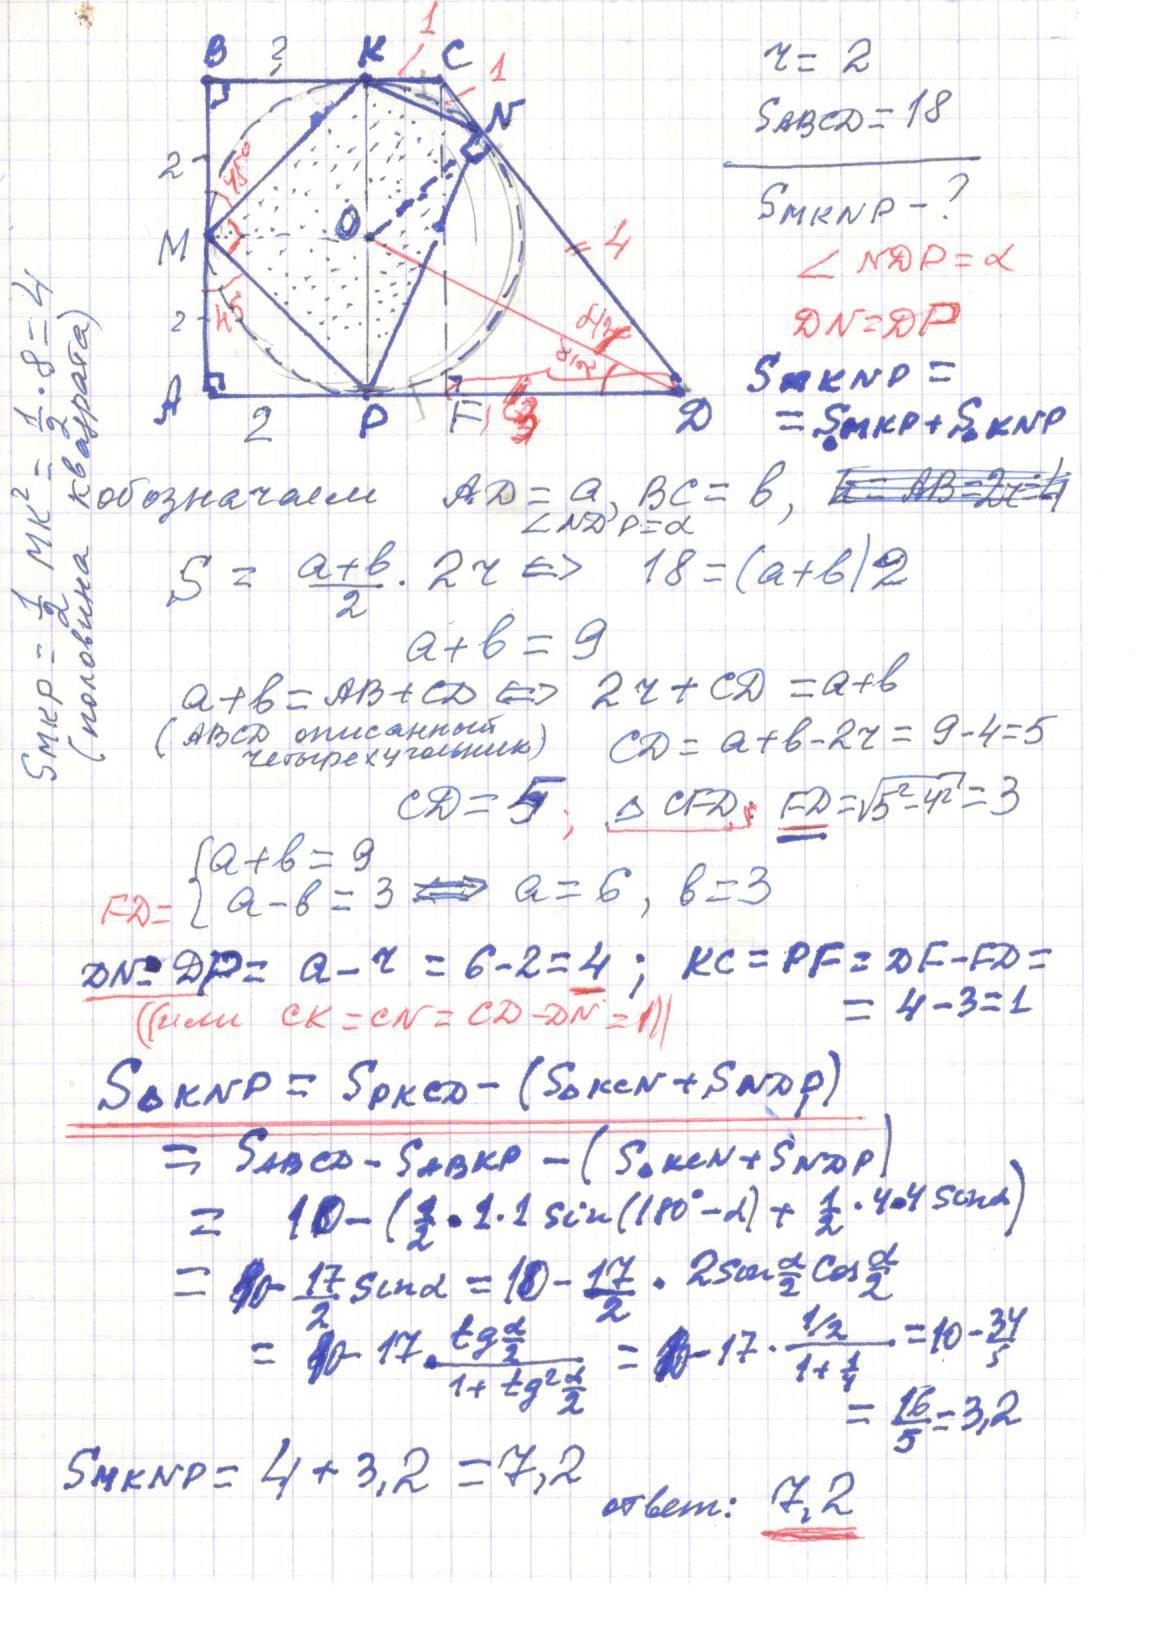 B K 1 C 1 N
2 45° M O 4
2 45° A 2 P F D
α/2 α/2
r = 2
S ABCD = 18
S MKNP - ?
∠ NDP = α
DN = DP
S MKNP =
= S MKP + S KNP
S MKP = 1/2 MK² = 1/2 · 8 = 4
(половина квадрата)
обозначаем AD = a, BC = b,
∠NDP = α
S = (a+b)/2 · 2r ⇔ 18 = (a+b)2
a+b = 9
a+b = AB+CD ⇔ 2r + CD = a+b
(ABCD описанный четырехугольник) CD = a+b-2r = 9-4=5
CD = 5 ; △ CFD: FD = √(5²-4²) = 3
{a+b = 9
FD = {a-b = 3 ⇔ a = 6, b = 3
DN = DP = a - r = 6-2 = 4 ; KC = PF = DF-FD =
= 4-3=1
((или CK = CN = CD-DN = 1))
S△KNP = S PKCD - (S△KCN + S NDP)
= S ABCD - S ABKP - (S△KCN + S NDP)
= 10 - (1/2 · 1 · 1 sin(180°-α) + 1/2 · 4·4 sinα)
= 10 - 17/2 sinα = 10 - 17/2 · 2sin α/2 cos α/2
= 10 - 17 · tg α/2 / (1+ tg² α/2) = 10 - 17 · (1/2)/(1+ 1/4) = 10 - 34/5
= 16/5 = 3,2
S MKNP = 4 + 3,2 = 7,2
ответ: 7,2